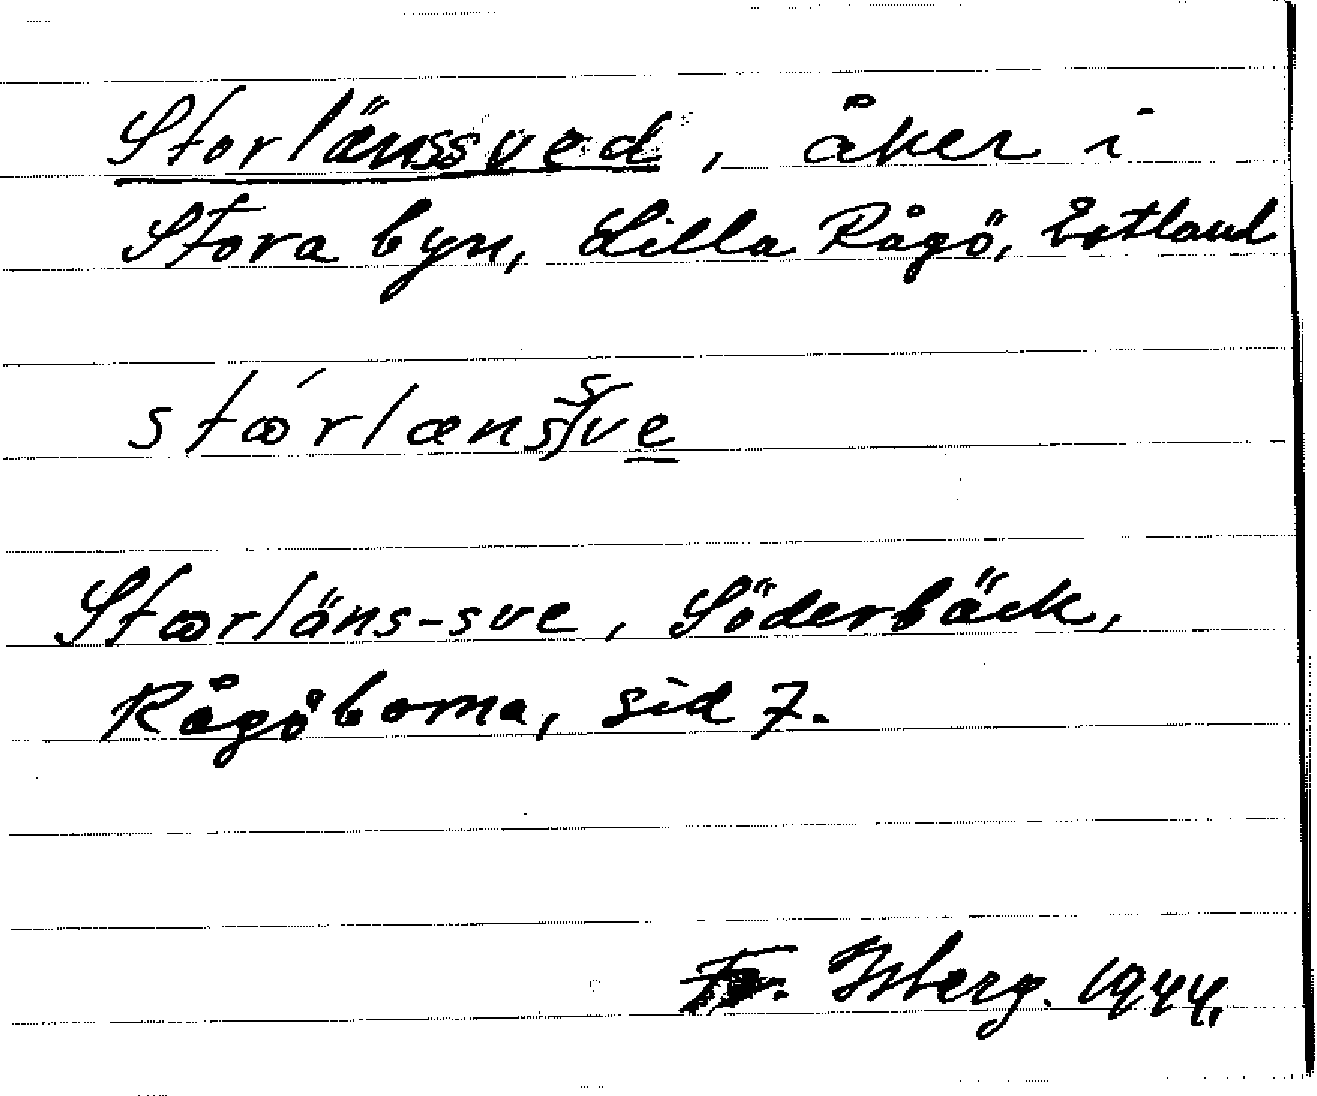 Storlänssved, åker i
Stora byn, Lilla Rågö, Estland
stœ́rlænsſve
Stœrläns-sve, Söderbäck,
Rågöborna, sid 7.
Fr. Isberg. 1944.